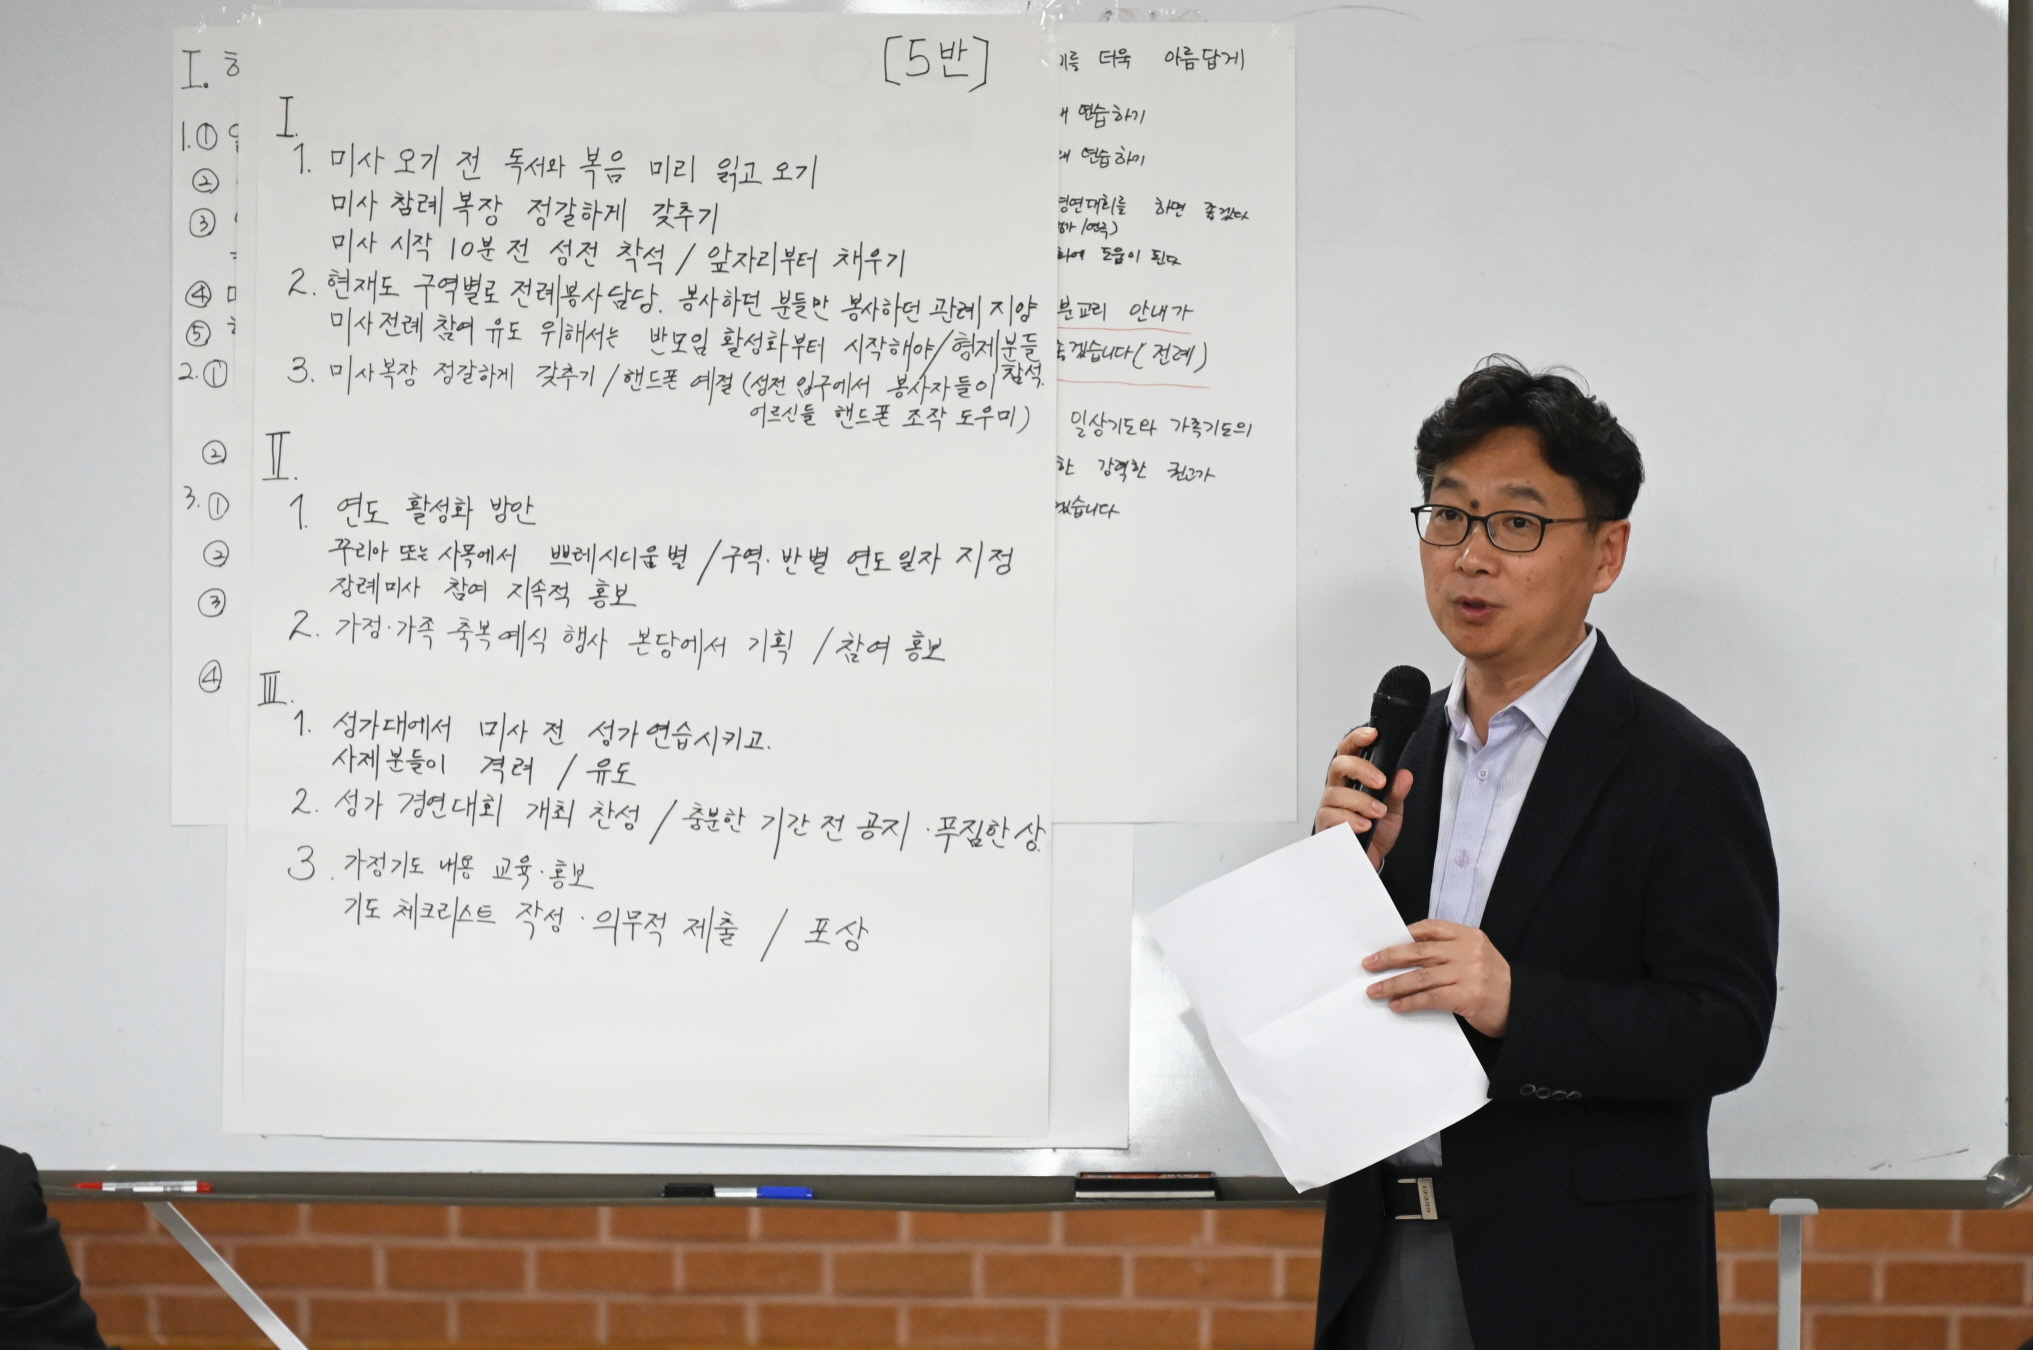 [5반]
I.
1. 미사 오기 전 독서와 복음 미리 읽고 오기
미사 참례 복장 정갈하게 갖추기
미사 시작 10분 전 성전 착석 / 앞자리부터 채우기
2. 현재도 구역별로 전례봉사 담당. 봉사하던 분들만 봉사하던 관례 지양
미사전례 참여 유도 위해서는 반모임 활성화부터 시작해야/형제분들 참석.
3. 미사복장 정갈하게 갖추기 / 핸드폰 예절 (성전 입구에서 봉사자들이
어르신들 핸드폰 조작 도우미)
II.
1. 연도 활성화 방안
꾸리아 또는 사목에서 쁘레시디움별 / 구역·반별 연도일자 지정
장례미사 참여 지속적 홍보
2. 가정·가족 축복예식 행사 본당에서 기획 / 참여 홍보
III.
1. 성가대에서 미사 전 성가연습시키고.
사제분들이 격려 / 유도
2. 성가 경연대회 개최 찬성 / 충분한 기간 전 공지·푸짐한 상.
3. 가정기도 내용 교육·홍보
기도 체크리스트 작성·의무적 제출 / 포상
I.
1. ①
②
③
④
⑤
2. ①
②
3. ①
②
③
④
더욱 아름답게
연습하기
연습하기
경연대회를 하면 좋겠다
도움이 된다
분교리 안내가
좋겠습니다(전례)
일상기도와 가족기도의
강력한 권고가
GUCCI